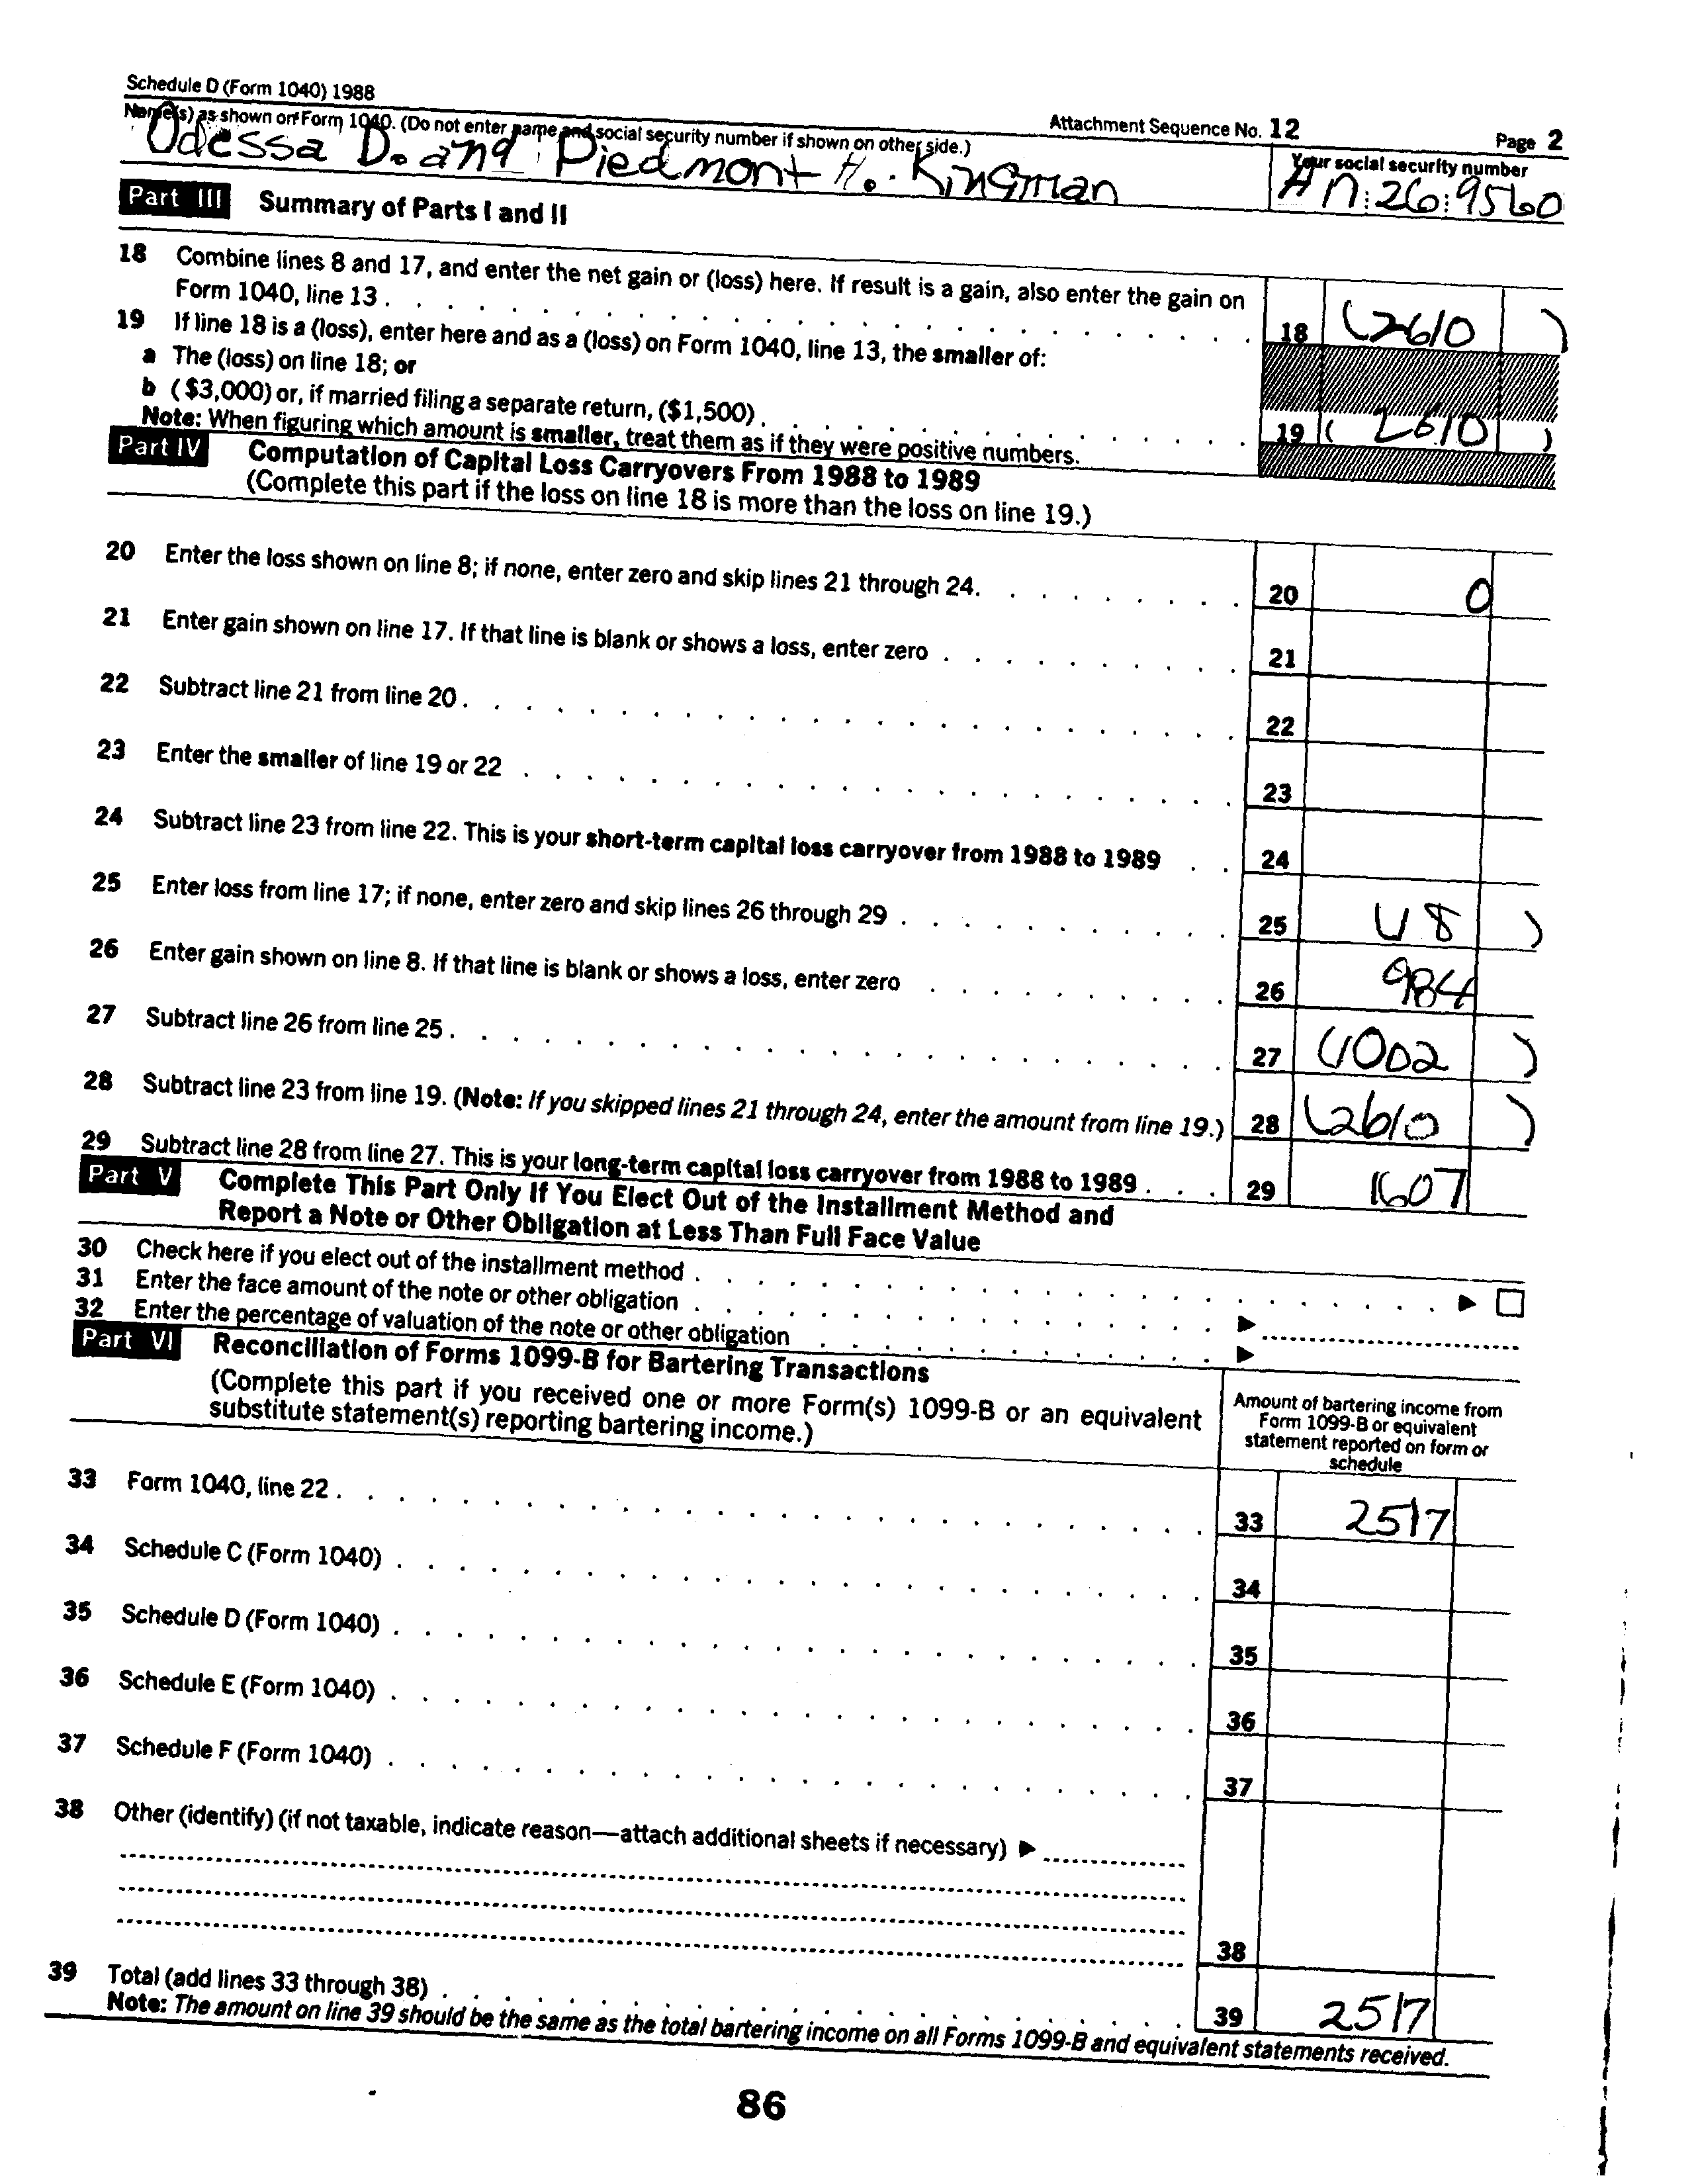 Schedule D (Form 1040) 1988
Attachment Sequence No. 12
Page 2
Name(s) as shown on Form 1040. (Do not enter name and social security number if shown on other side.)
Your social security number
Odessa D. and Piedmont H. Kingman
26 9560
Part III Summary of Parts I and II
18 Combine lines 8 and 17, and enter the net gain or (loss) here. If result is a gain, also enter the gain on
Form 1040, line 13 . . . 18 (2610 )
19 If line 18 is a (loss), enter here and as a (loss) on Form 1040, line 13, the smaller of:
a The (loss) on line 18; or
b ($3,000) or, if married filing a separate return, ($1,500) . . . 19 ( 2610 )
Note: When figuring which amount is smaller, treat them as if they were positive numbers.
Part IV Computation of Capital Loss Carryovers From 1988 to 1989
(Complete this part if the loss on line 18 is more than the loss on line 19.)
20 Enter the loss shown on line 8; if none, enter zero and skip lines 21 through 24. . . . 20 0
21 Enter gain shown on line 17. If that line is blank or shows a loss, enter zero . . . 21
22 Subtract line 21 from line 20 . . . 22
23 Enter the smaller of line 19 or 22 . . . 23
24 Subtract line 23 from line 22. This is your short-term capital loss carryover from 1988 to 1989 . . 24
25 Enter loss from line 17; if none, enter zero and skip lines 26 through 29 . . . 25 )
26 Enter gain shown on line 8. If that line is blank or shows a loss, enter zero . . . 26 984
27 Subtract line 26 from line 25 . . . 27 )
28 Subtract line 23 from line 19. (Note: If you skipped lines 21 through 24, enter the amount from line 19.) 28 (2610 )
29 Subtract line 28 from line 27. This is your long-term capital loss carryover from 1988 to 1989 . . . 29 1607
Part V Complete This Part Only If You Elect Out of the Installment Method and
Report a Note or Other Obligation at Less Than Full Face Value
30 Check here if you elect out of the installment method . . . ▶ ☐
31 Enter the face amount of the note or other obligation . . . ▶
32 Enter the percentage of valuation of the note or other obligation . . . ▶
Part VI Reconciliation of Forms 1099-B for Bartering Transactions
(Complete this part if you received one or more Form(s) 1099-B or an equivalent
substitute statement(s) reporting bartering income.)
Amount of bartering income from
Form 1099-B or equivalent
statement reported on form or
schedule
33 Form 1040, line 22 . . . 33 2517
34 Schedule C (Form 1040) . . . 34
35 Schedule D (Form 1040) . . . 35
36 Schedule E (Form 1040) . . . 36
37 Schedule F (Form 1040) . . . 37
38 Other (identify) (if not taxable, indicate reason—attach additional sheets if necessary) ▶
38
39 Total (add lines 33 through 38) . . . 39 2517
Note: The amount on line 39 should be the same as the total bartering income on all Forms 1099-B and equivalent statements received.
86